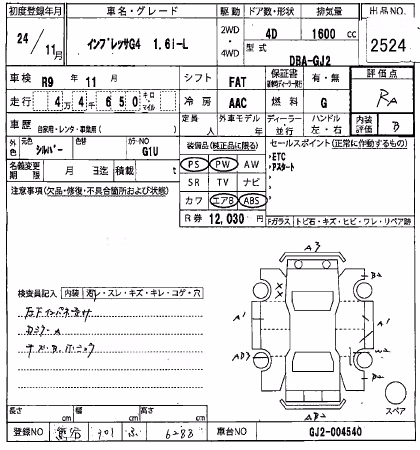 初度登録年月
車名・グレード
駆動
ドア数・形状
排気量
出品NO.
24/11月
インプレッサG4 1.6i-L
2WD・4WD
4D
1600 cc
2524
型式
DBA-GJ2
車検 R9年 11月
シフト FAT
保証書
有・無
評価点
走行 4万4千650キロ・マイル
冷房 AAC
燃料 G
RA
車歴
自家用・レンタ・事業用( )
定員 人
外車モデル 年
ディーラー・並行
ハンドル 左・右
内装評価 B
外色
元色 シルバー
色替
カラーNO G1U
装備品(純正品に限る)
セールスポイント(正常に作動するもの)
PS PW AW
ETC
名義変更期限 月 日迄
積載 t
SR TV ナビ
注意事項(欠品・修復・不具合箇所および状態)
カワ エアB ABS
R券 12,030 円
Fガラス トビ石・キズ・ヒビ・ワレ・リペア跡
A3
B2
検査員記入
内装
スレ・キズ・キレ・コゲ・穴
A1
A1
W2
B2
スペア
長さ cm
幅 cm
高さ cm
登録NO
301 ふ 6288
車台NO GJ2-004540